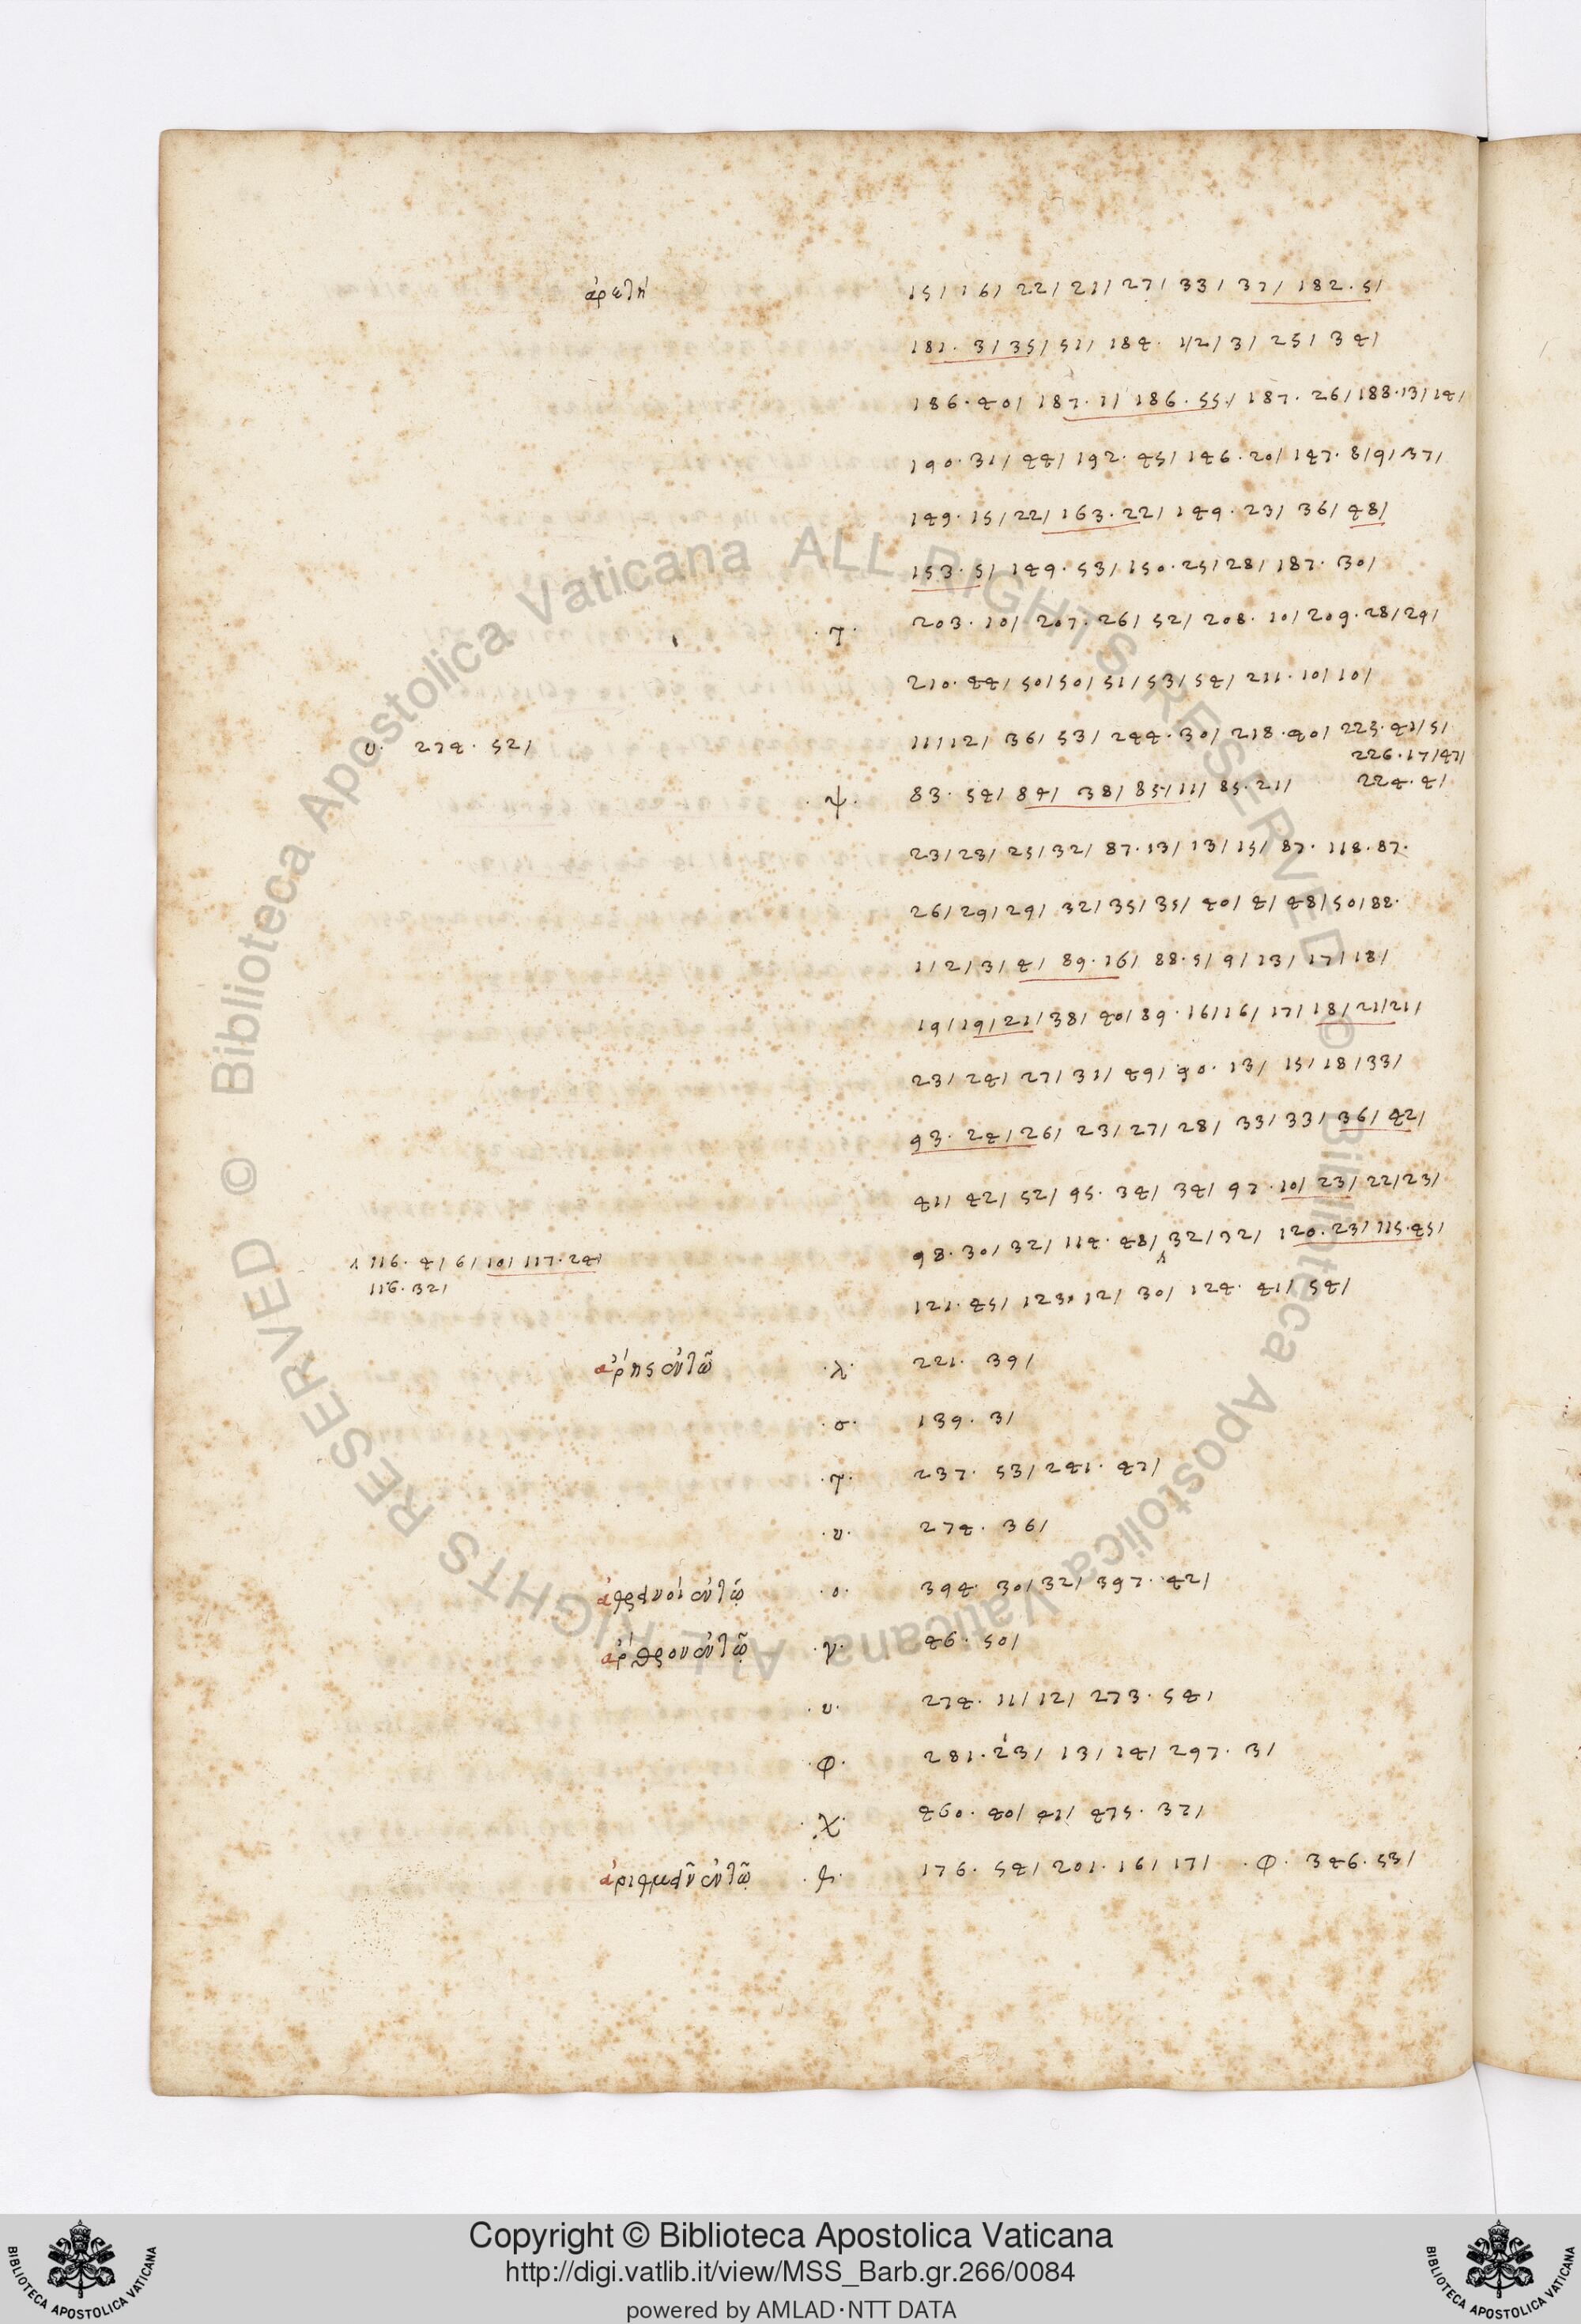 ἀρετή 15/ 16/ 22/ 21/ 27/ 33/ 37/ 182. 5/
181. 3/ 35/ 51/ 184. 1/2/ 3/ 25/ 34/
186. 40/ 187. 1/ 186. 55./ 187. 26/ 188. 13/ 14/
190. 31/ 44/ 192. 45/ 146. 20/ 147. 8/ 9/ 37/
149. 15/ 22/ 163. 22/ 149. 23/ 36/ 48/
153. 5/ 149. 53/ 150. 25/ 28/ 187. 30/
.τ. 203. 10/ 207. 26/ 52/ 208. 10/ 209. 28/ 29/
210. 44/ 50/ 50/ 51/ 53/ 54/ 211. 10/ 10/
υ. 274. 52/ 11/ 12/ 36/ 53/ 244. 30/ 218. 40/ 225. 41/ 5/
226. 17/ 47/
.ψ. 83. 54/ 84/ 38/ 85/ 11/ 85. 21/ 224. 4/
23/ 23/ 25/ 32/ 87. 13/ 13/ 15/ 87. 118. 87.
26/ 29/ 29/ 32/ 35/ 35/ 40/ 4/ 48/ 50/ 88.
1/ 2/ 3/ 4/ 89. 16/ 88. 5/ 9/ 13/ 17/ 18/
19/ 19/ 21/ 38/ 40/ 89. 16/ 16/ 17/ 18/ 21/ 21/
23/ 24/ 27/ 31/ 49/ 90. 13/ 15/ 18/ 33/
93. 24/ 26/ 23/ 27/ 28/ 33/ 33/ 36/ 42/
41/ 42/ 52/ 95. 34/ 34/ 97. 10/ 23/ 22/ 23/
98. 30/ 32/ 114. 48/ 32/ 32/ 120. 23/ 115. 45/
116. 4/ 6/ 10/ 117. 24/
116. 32/
121. 45/ 123. 12/ 30/ 124. 41/ 54/
.λ. 221. 39/
.σ. 139. 3/
.τ. 237. 53/ 241. 47/
.υ. 274. 36/
.ο. 394. 30/ 32/ 397. 42/
.γ. 46. 50/
.υ. 274. 11/ 12/ 273. 54/
.φ. 281. 23/ 13/ 14/ 297. 3/
.χ. 460. 40/ 41/ 475. 37/
176. 54/ 201. 16/ 17/ .φ. 346. 53/
Biblioteca Apostolica Vaticana ALL RIGHTS RESERVED ©
Biblioteca Apostolica Vaticana ALL RIGHTS RESERVED ©
Copyright © Biblioteca Apostolica Vaticana
http://digi.vatlib.it/view/MSS_Barb.gr.266/0084
powered by AMLAD·NTT DATA
BIBLIOTECA APOSTOLICA VATICANA
BIBLIOTECA APOSTOLICA VATICANA